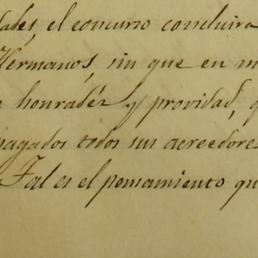 dades, el concurso concluira
Hermanos, sin que en m
honradéz y providad, q
pagados todos sus acreedores
Tal es el pensamiento qu